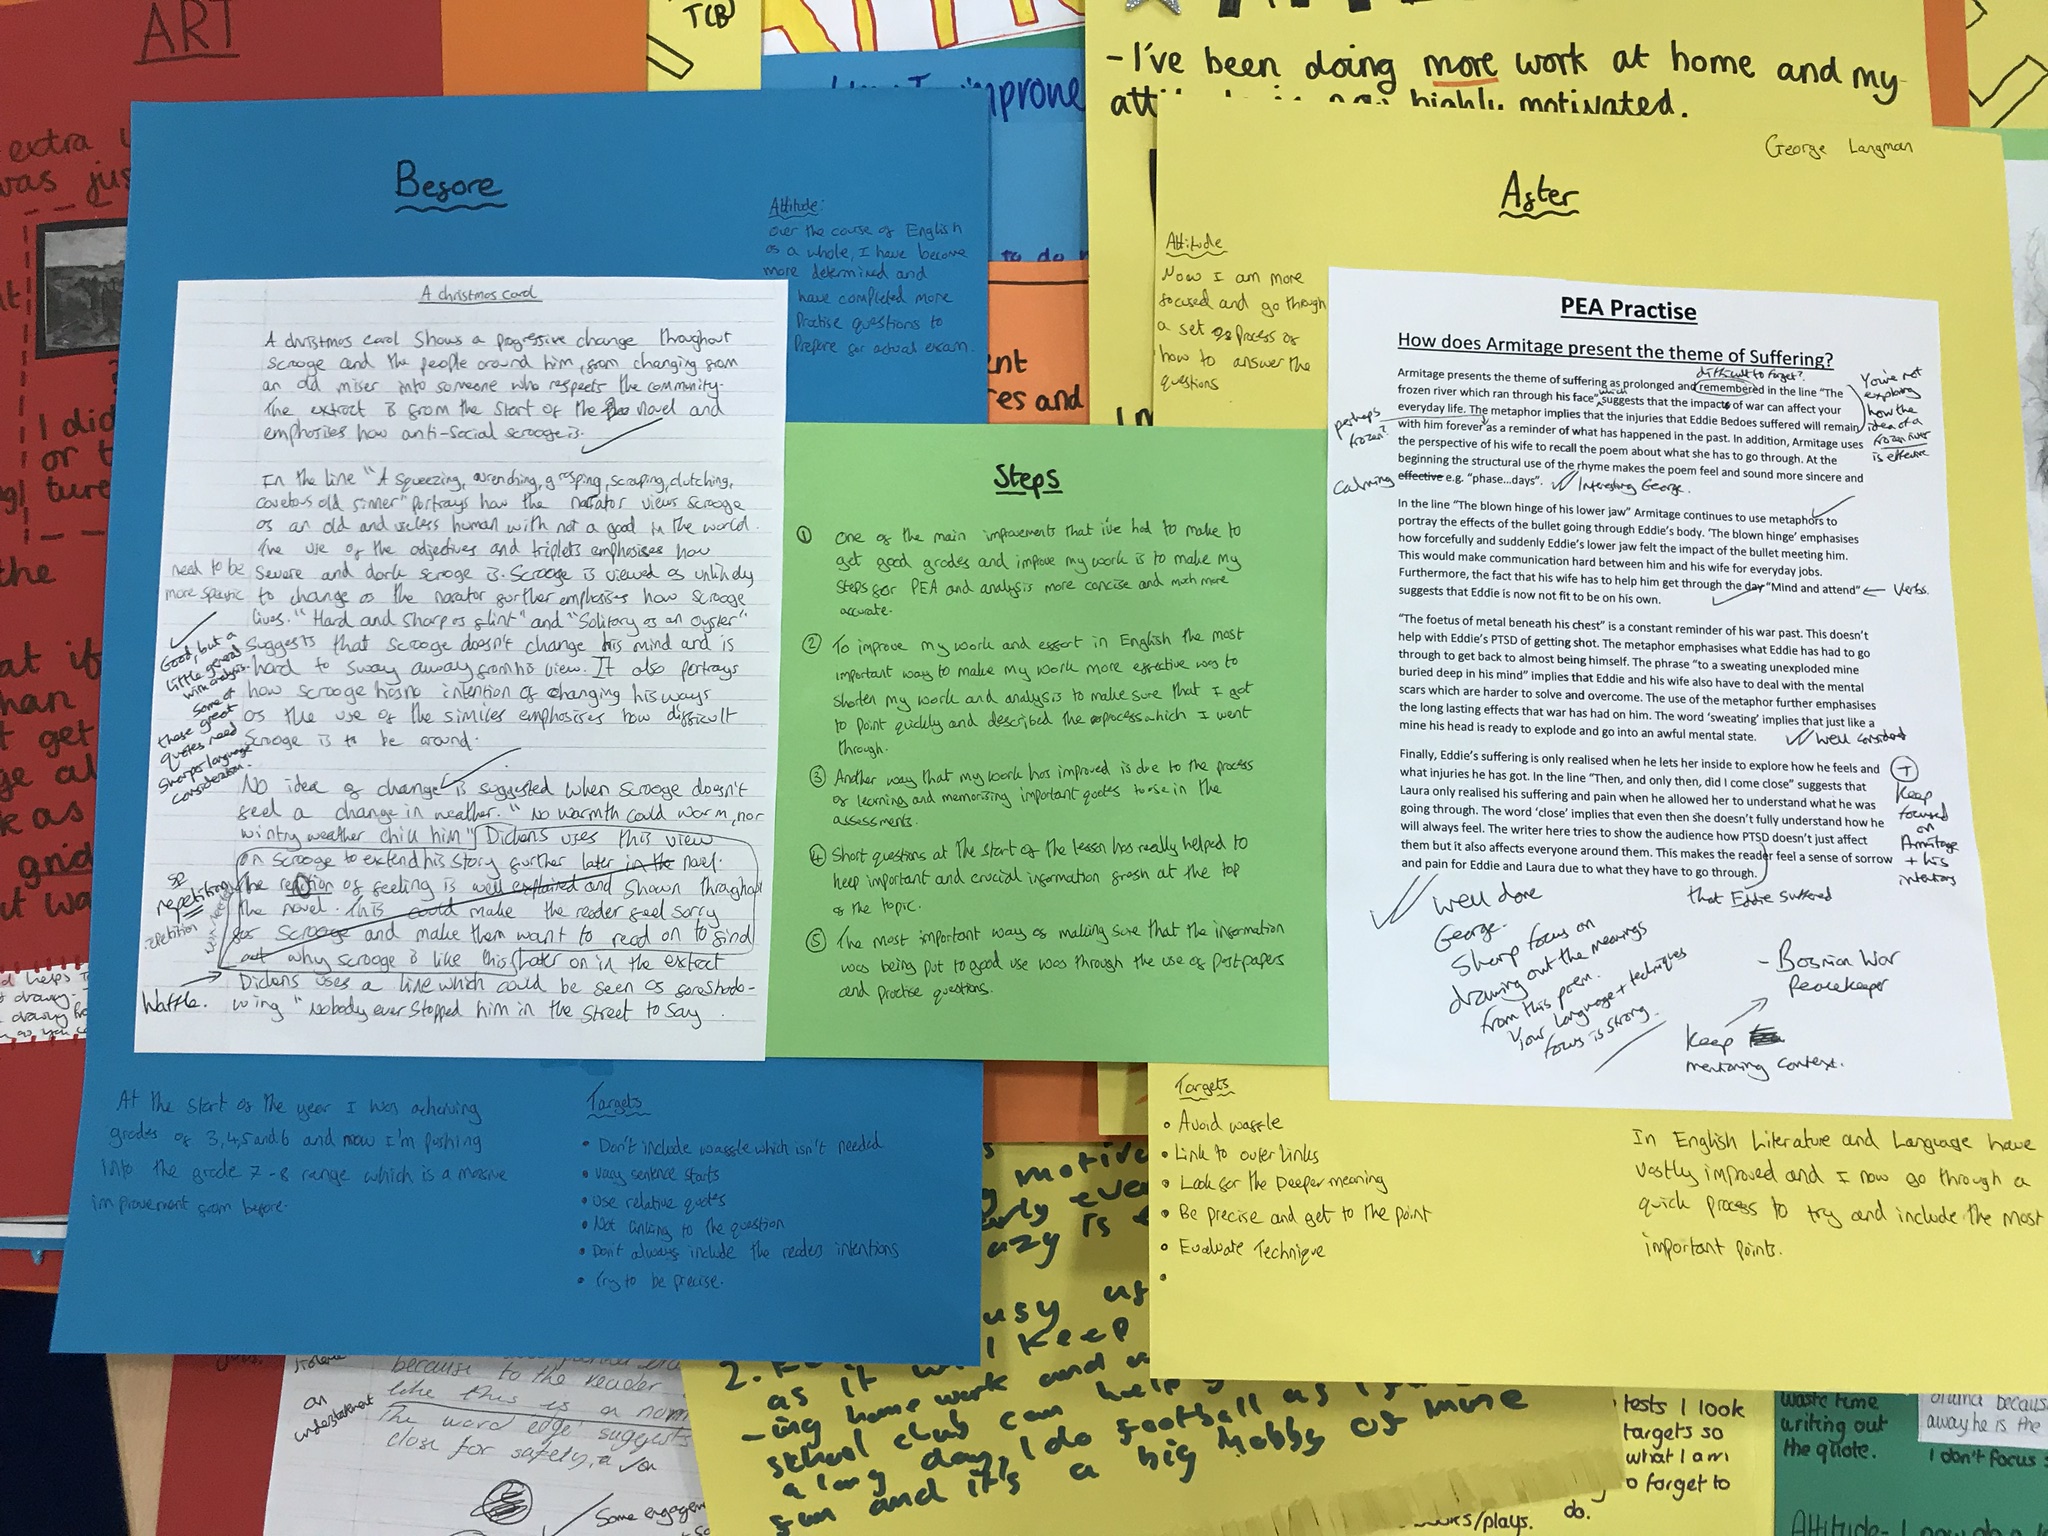 ART
TCB
extra
was jus
I did
or t
ture
the
at if
than
t get
grid
- I've been doing more work at home and my
highly motivated.
George Langman
Before
Attitude:
Over the course of English
as a whole, I have become
more determined and
have completed more
Practise questions to
Prepare for actual exam.
A christmas carol
A christmas carol Shows a progressive change throughout
scrooge and the people around him, from changing from
an old miser into someone who respects the community.
The extract is from the start of the novel and
emphasises how anti-social scrooge is.
In the line "A squeezing, wrenching, grasping, scraping, clutching,
covetous old sinner" portrays how the narrator views scrooge
as an old and useless human with not a good in the world.
The use of the adjectives and triplets emphasises how
severe and dark scrooge is. Scrooge is viewed as unlikely
to change as the narrator further emphasises how scrooge
lives. "Hard and sharp as flint" and "Solitary as an oyster"
suggests that scrooge doesn't change his mind and is
hard to sway away from his view. It also portrays
how scrooge has no intention of changing his ways
as the use of the similes emphasises how difficult
Scrooge is to be around.
No idea of change is suggested when scrooge doesn't
feel a change in weather. "No warmth could warm, nor
wintry weather chill him" Dickens uses this view
on scrooge to extend his story further later in the novel.
The repition of feeling is well explained and shown throughout
the novel. This could make the reader feel sorry
for scrooge and make them want to read on to find
out why scrooge is like this. Later on in the extract
Dickens uses a line which could be seen as foreshado-
wing "Nobody ever stopped him in the street to say
need to be
more specific
Good, but a
little general
with analysis.
Some of
these great
quotes need
sharper language
consideration.
sp
repetition
repetition
Waffle.
At the start of the year I was achieving
grades of 3,4,5 and 6 and now I'm pushing
into the grade 7-8 range which is a massive
improvement from before.
Targets
• Don't include waffle which isn't needed
• vary sentence starts
• use relative quotes
• Not linking to the question
• Don't always include the readers intentions
• Try to be precise.
Steps
1 One of the main improvements that i've had to make to
get good grades and improve my work is to make my
steps for PEA and analysis more concise and much more
accurate.
2 To improve my work and effort in English the most
important way to make my work more effective was to
shorten my work and analysis to make sure that I got
to point quickly and described the process which I went
through.
3 Another way that my work has improved is due to the process
of learning and memorising important quotes to use in the
assessments.
4 Short questions at the start of the lesson has really helped to
keep important and crucial information fresh at the top
of the topic.
5 The most important way of making sure that the information
was being put to good use was through the use of past papers
and practise questions.
After
Attitude
Now I am more
focused and go through
a set of process of
how to answer the
questions
PEA Practise
How does Armitage present the theme of Suffering?
Armitage presents the theme of suffering as prolonged and remembered in the line "The
frozen river which ran through his face" suggests that the impacts of war can affect your
everyday life. The metaphor implies that the injuries that Eddie Bedoes suffered will remain
with him forever as a reminder of what has happened in the past. In addition, Armitage uses
the perspective of his wife to recall the poem about what she has to go through. At the
beginning the structural use of the rhyme makes the poem feel and sound more sincere and
effective e.g. "phase...days".
In the line "The blown hinge of his lower jaw" Armitage continues to use metaphors to
portray the effects of the bullet going through Eddie's body. 'The blown hinge' emphasises
how forcefully and suddenly Eddie's lower jaw felt the impact of the bullet meeting him.
This would make communication hard between him and his wife for everyday jobs.
Furthermore, the fact that his wife has to help him get through the day "Mind and attend"
suggests that Eddie is now not fit to be on his own.
"The foetus of metal beneath his chest" is a constant reminder of his war past. This doesn't
help with Eddie's PTSD of getting shot. The metaphor emphasises what Eddie has had to go
through to get back to almost being himself. The phrase "to a sweating unexploded mine
buried deep in his mind" implies that Eddie and his wife also have to deal with the mental
scars which are harder to solve and overcome. The use of the metaphor further emphasises
the long lasting effects that war has had on him. The word 'sweating' implies that just like a
mine his head is ready to explode and go into an awful mental state.
Finally, Eddie's suffering is only realised when he lets her inside to explore how he feels and
what injuries he has got. In the line "Then, and only then, did I come close" suggests that
Laura only realised his suffering and pain when he allowed her to understand what he was
going through. The word 'close' implies that even then she doesn't fully understand how he
will always feel. The writer here tries to show the audience how PTSD doesn't just affect
them but it also affects everyone around them. This makes the reader feel a sense of sorrow
and pain for Eddie and Laura due to what they have to go through.
difficult to forget?
which
You're not
exploring
how the
idea of a
frozen river
is effective
perhaps
frozen?
calming
Interesting George.
Verbs.
well considered
+
Keep
focused
on
Armitage
+ his
intentions
that Eddie suffered
Well done
George.
Sharp focus on
drawing out the meanings
from this poem.
Your language + techniques
focus is strong.
- Bosnian War
Peacekeeper
Keep
mentioning context.
Targets
• Avoid waffle
• Link to outer links
• Look for the Deeper meaning
• Be precise and get to the point
• Evaluate Technique
•
In English Literature and Language have
vastly improved and I now go through a
quick process to try and include the most
important points.
an
understatement
because to the reader
like this is a norm
The word 'edge' suggests
close for safety, a
Some engagem
2.
as it
school club can help
a long day, I do football as
fun and it's a big hobby of mine
tests I look
targets so
what I am
forget to
do.
/plays.
waste time
writing out
the quote.
away he is the
I don't focus